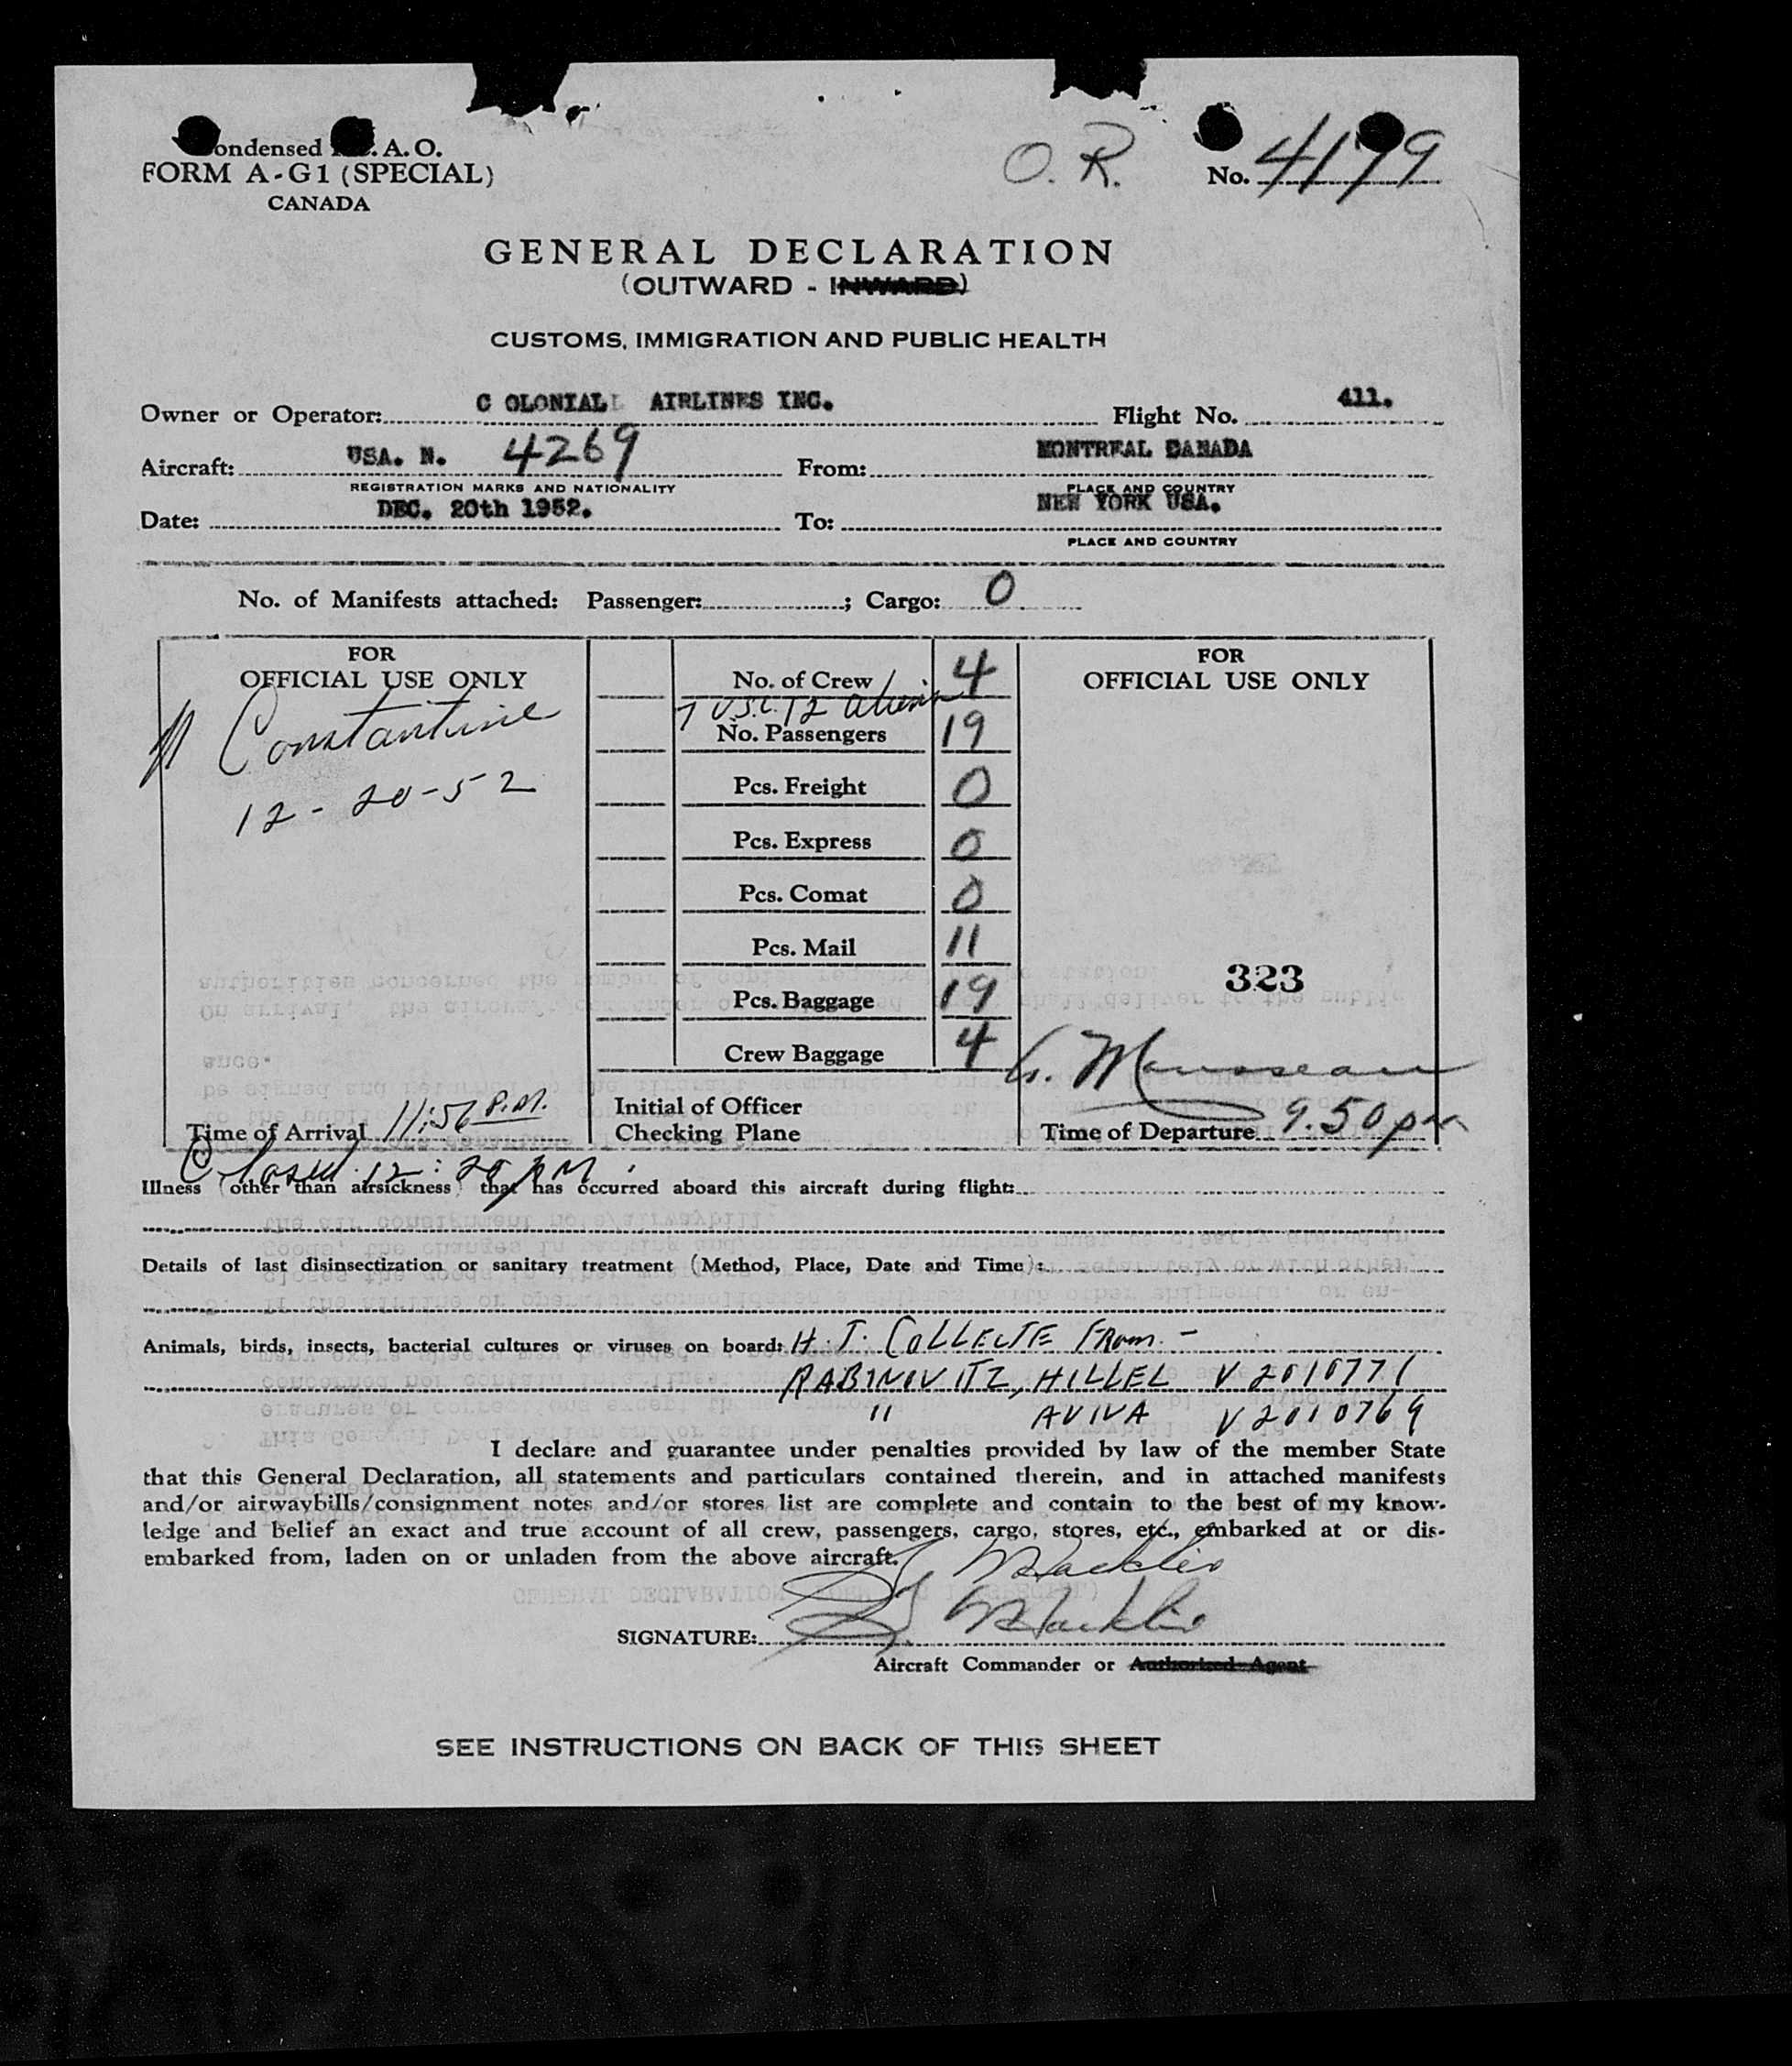 ondensed .A.O.
FORM A-G1 (SPECIAL)
CANADA
O. R.
No. 4179
GENERAL DECLARATION
(OUTWARD - INWARD)
CUSTOMS, IMMIGRATION AND PUBLIC HEALTH
Owner or Operator: C OLONIAL AIRLINES INC. Flight No. 411.
Aircraft: USA. N. 4269 From: MONTREAL DANADA
REGISTRATION MARKS AND NATIONALITY PLACE AND COUNTRY
Date: DEC. 20th 1952. To: NEW YORK USA.
PLACE AND COUNTRY
No. of Manifests attached: Passenger: ; Cargo: 0
FOR
OFFICIAL USE ONLY
Constantine
12-20-52
Time of Arrival 11:56 P.M.
No. of Crew 4
7 U.S.C. 12 aliens
No. Passengers 19
Pcs. Freight 0
Pcs. Express 0
Pcs. Comat 0
Pcs. Mail 11
Pcs. Baggage 19
Crew Baggage 4
Initial of Officer
Checking Plane
FOR
OFFICIAL USE ONLY
323
G. Mousseau
Time of Departure 9.50 pm
Illness (other than airsickness) that has occurred aboard this aircraft during flight:
Details of last disinsectization or sanitary treatment (Method, Place, Date and Time):
Animals, birds, insects, bacterial cultures or viruses on board: H. T. COLLECTE FROM. -
RABINOVITZ, HILLEL V 2010771
" AVIVA V 2010769
I declare and guarantee under penalties provided by law of the member State
that this General Declaration, all statements and particulars contained therein, and in attached manifests
and/or airwaybills/consignment notes and/or stores list are complete and contain to the best of my know-
ledge and belief an exact and true account of all crew, passengers, cargo, stores, etc., embarked at or dis-
embarked from, laden on or unladen from the above aircraft.
SIGNATURE:
Aircraft Commander or Authorized Agent
SEE INSTRUCTIONS ON BACK OF THIS SHEET